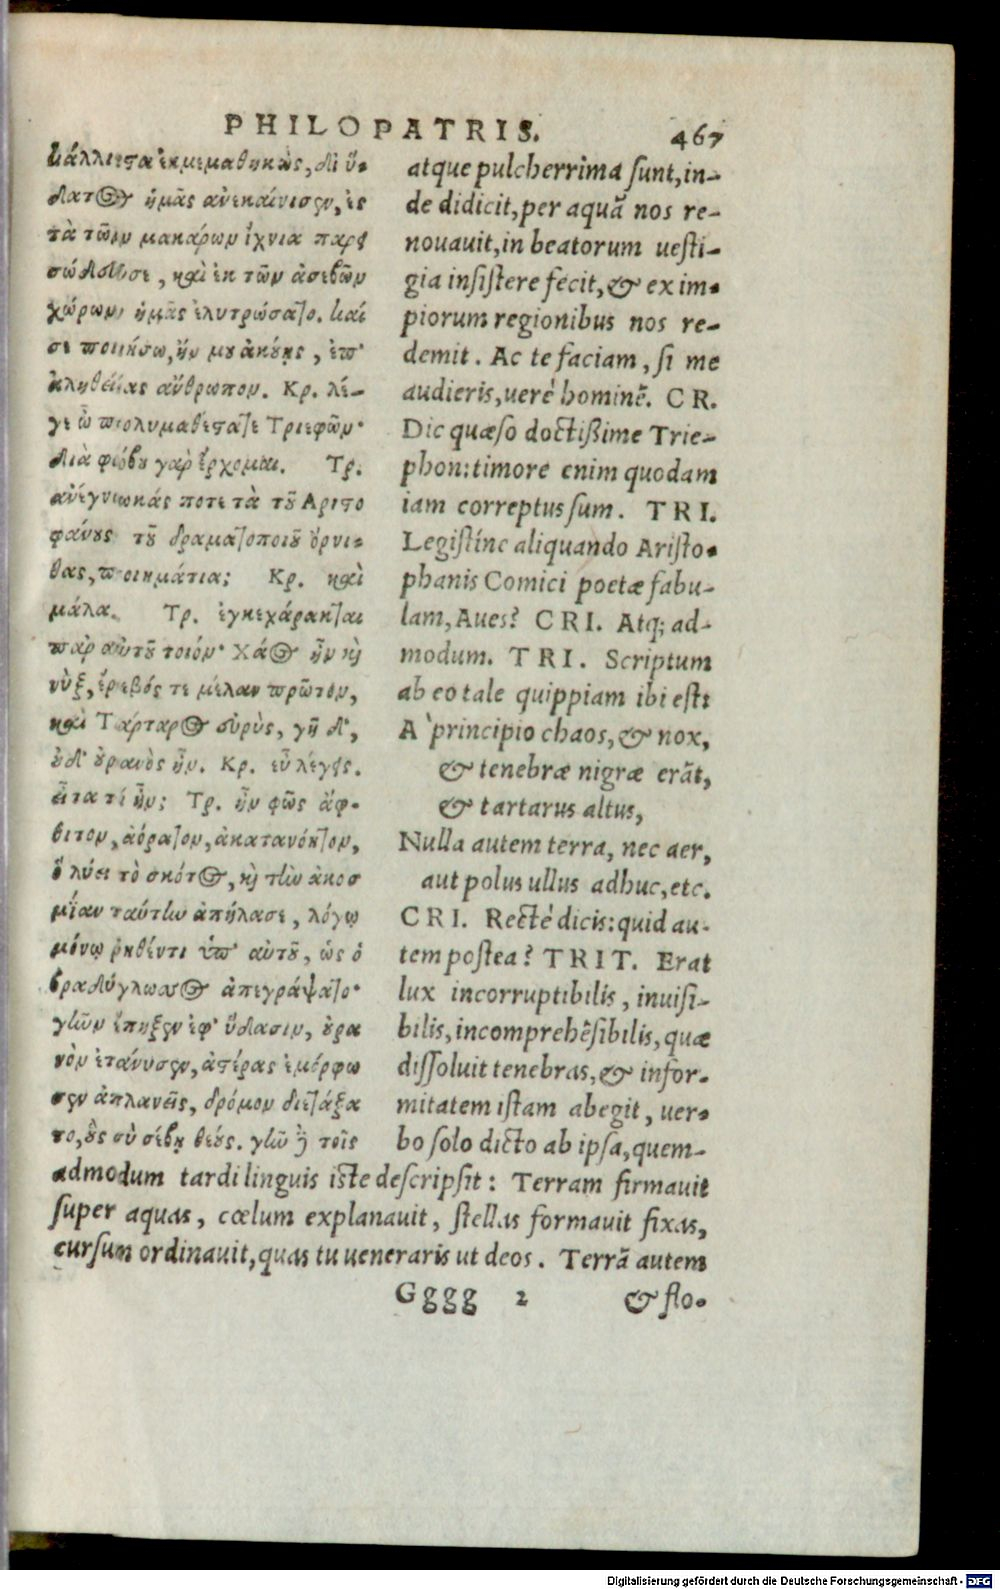 PHILOPATRIS. 467
κάλλιστα ἐκμεμαθηκὼς, δι ὕ-
δατος ἡμᾶς ἀνεκαίνισεν, ἐς
τὰ τῶν μακάρων ἴχνια παρει
σώδευσε, καὶ ἐκ τῶν ἀσεβῶν
χώρων ἡμᾶς ἐλυτρώσατο. καί
σε ποιήσω, ἤν μου ἀκούῃς, ἐπ'
ἀληθείας ἄνθρωπον. Κρ. λέ-
γε ὦ πολυμαθέστατε Τριεφῶν·
διὰ φόβου γὰρ ἔρχομαι. Τρ.
ἀνέγνωκάς ποτε τὰ τοῦ Αριστο
φάνους τοῦ δραματοποιοῦ ὄρνι-
θας, ποιημάτια; Κρ. καὶ
μάλα. Τρ. ἐγκεχάρακται
παρ αὐτοῦ τοιόν· χάος ἦν καὶ
νὺξ, ἔρεβός τε μέλαν πρῶτον,
καὶ Τάρταρος εὐρὺς, γῆ δ',
οὐδ' οὐρανὸς ἦν. Κρ. εὖ λέγεις.
εἶτα τί ἦν; Τρ. ἦν φῶς ἄφ-
θιτον, ἀόρατον, ἀκατανόητον,
ὃ λύει τὸ σκότος, καὶ τὴν ἀκοσ
μίαν ταύτην ἀπήλασε, λόγῳ
μόνῳ ῥηθέντι ὑπ' αὐτοῦ, ὡς ὁ
βραδύγλωσσος ἀπεγράψατο·
γῆν ἔπηξεν ἐφ' ὕδασιν, οὐρα
νὸν ἐτάνυσεν, ἀστέρας ἐμόρφω
σεν ἀπλανεῖς, δρόμον διετάξα
το, οὓς σὺ σέβῃ θεούς. γῆν δὲ τοῖς
atque pulcherrima sunt, in-
de didicit, per aquā nos re-
nouauit, in beatorum uesti-
gia insistere fecit, & ex im-
piorum regionibus nos re-
demit. Ac te faciam, si me
audieris, uerè hominē. CR.
Dic quæso doctißime Trie-
phon: timore enim quodam
iam correptus sum. TRI.
Legistínc aliquando Aristo-
phanis Comici poetæ fabu-
lam, Aues? CRI. Atq; ad-
modum. TRI. Scriptum
ab eo tale quippiam ibi est:
A` principio chaos, & nox,
& tenebræ nigræ erāt,
& tartarus altus,
Nulla autem terra, nec aer,
aut polus ullus adhuc, etc.
CRI. Rectè dicis: quid au-
tem postea? TRIT. Erat
lux incorruptibilis, inuisi-
bilis, incomprehēsibilis, quæ
dissoluit tenebras, & infor-
mitatem istam abegit, uer-
bo solo dicto ab ipsa, quem-
admodum tardilinguis iste descripsit: Terram firmauit
super aquas, cœlum explanauit, stellas formauit fixas,
cursum ordinauit, quas tu ueneraris ut deos. Terrā autem
Gggg 2 & flo-
Digitalisierung gefördert durch die Deutsche Forschungsgemeinschaft - DFG